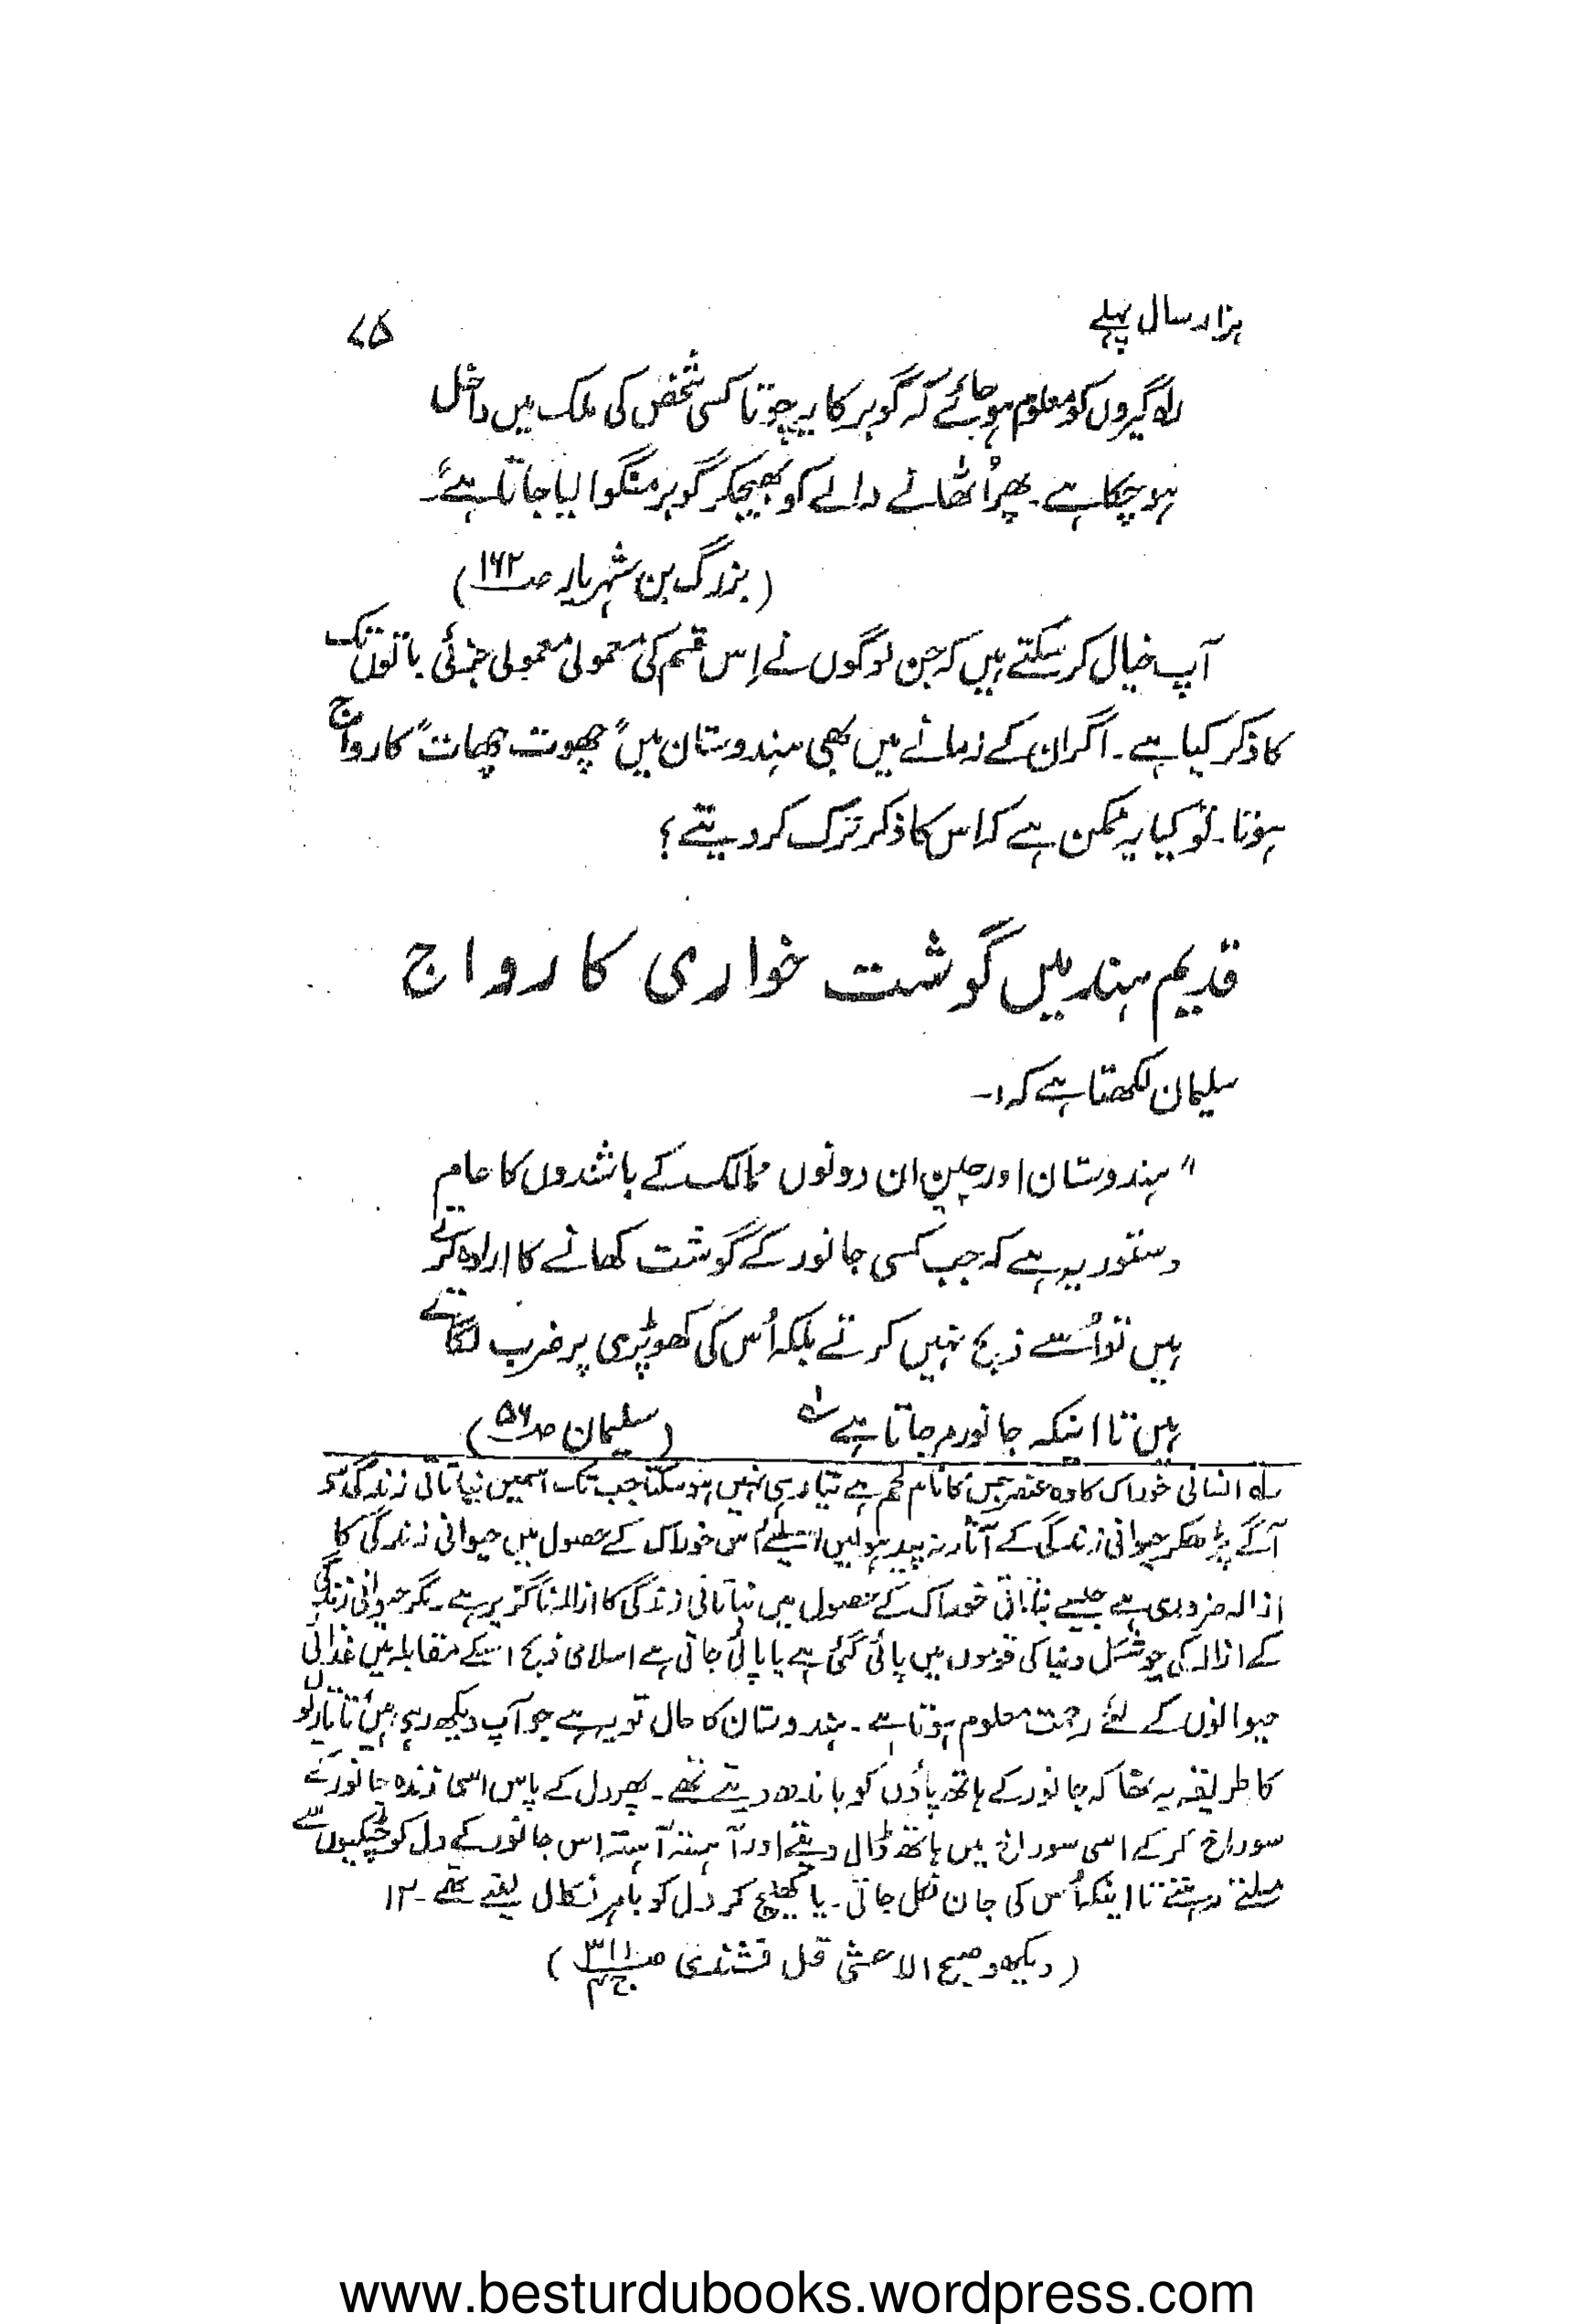 ہزار سال پہلے ۷۵
راہ گیروں کو معلوم ہو جائے کہ گوبر کا یہ چوتا کسی شخص کی ملک میں داخل
ہو چکا ہے۔ پھر اُٹھانے والے کو بھیجکر گوبر منگوا لیا جاتا ہے۔
(بزرگ بن شہریار صـ۱۶۲)
آپ خیال کر سکتے ہیں کہ جن لوگوں نے اِس قسم کی معمولی معمولی جزئی باتوں تک
کا ذکر کیا ہے۔ اگر ان کے زمانے میں بھی ہندوستان میں "چھوت چھات" کا رواج
ہوتا۔ تو کیا یہ ممکن ہے کہ اس کا ذکر ترک کر دیتے؟
قدیم ہند میں گوشت خواری کا رواج
سلیمان لکھتا ہے کہ:۔
"ہندوستان اور چین ان دونوں ممالک کے باشندوں کا عام
دستور یہ ہے کہ جب کسی جانور کے گوشت کھانے کا ارادہ کرتے
ہیں تو اُسے ذبح نہیں کرتے بلکہ اُس کی کھوپڑی پر ضرب لگاتے
ہیں تا اینکہ جانور مر جاتا ہے لہ (سلیمان صـ۵۶)
لہ انسانی خوراک کا وہ عنصر جس کا نام لحم ہے تیار ہی نہیں ہو سکتا جب تک اسمیں نباتاتی زندگی سے
آگے بڑھکر حیوانی زندگی کے آثار نہ پیدا ہو لیں اسلئے اس خوراک کے حصول میں حیوانی زندگی کا
ازالہ ضروری ہے جیسے نباتاتی خوراک کے حصول میں نباتاتی زندگی کا ازالہ ناگزیر ہے۔ مگر حیوانی زندگی
کے ازالہ کی جو شکل دنیا کی قوموں میں پائی گئی ہے یا پائی جاتی ہے اسلامی ذبح اسکے مقابلہ میں غذائی
حیوانوں کے لئے رحمت معلوم ہوتا ہے۔ ہندوستان کا حال تو یہ ہے جو آپ دیکھ رہے ہیں تاتاریوں
کا طریقہ یہ تھا کہ جانور کے ہاتھ پاؤں کو باندھ دیتے تھے۔ پھر دل کے پاس اسی زندہ جانور کے
سوراخ کر کے اسی سوراخ میں ہاتھ ڈال دیتے اور آہستہ آہستہ اس جانور کے دل کو چٹکیوں سے
مسلتے رہتے تا اینکہ اُس کی جان نکل جاتی۔ یا کھینچ کر دل کو باہر نکال لیتے تھے۔ ۱۲
(دیکھو صبح الاعشیٰ قل قشندی صـ۳۱۱ ج۴)
www.besturdubooks.wordpress.com